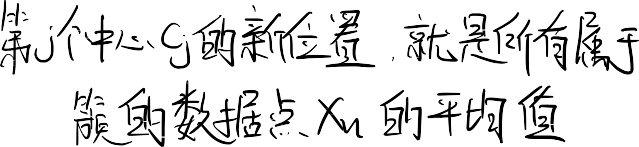 第j个中心Cj的新位置,就是所有属于
簇的数据点Xn的平均值